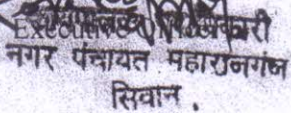 Executive Officer
नगर पंचायत महाराजगंज
सिवान .